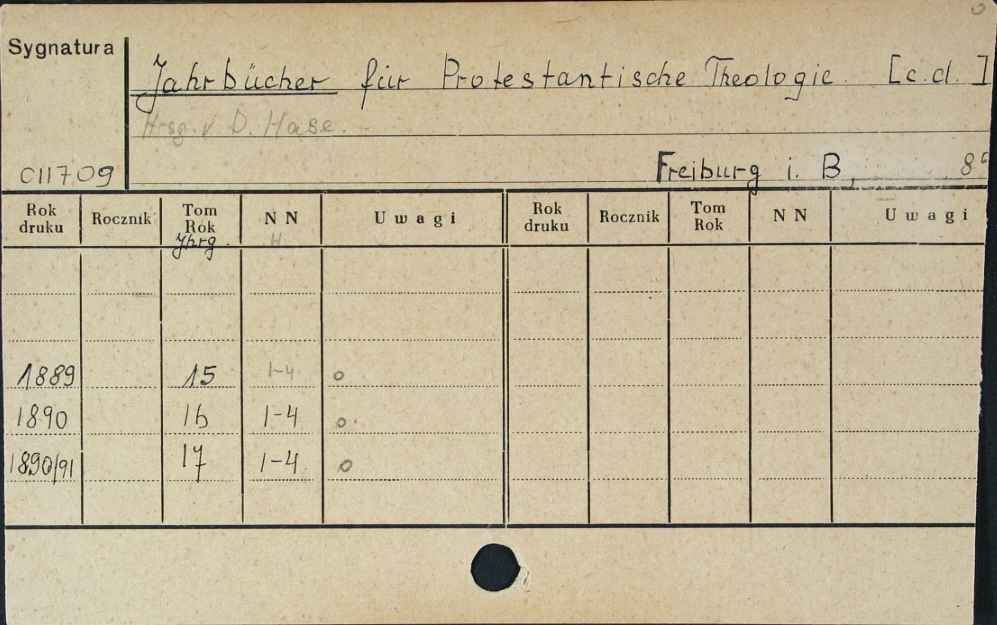 Sygnatura
Jahrbücher für Protestantische Theologie. [c.d.]
Hrsg. v. D. Hase.
C11709
Freiburg i. B., 8°
Rok druku Rocznik Tom Rok NN Uwagi Rok druku Rocznik Tom Rok NN Uwagi
Jhrg. H.
1889 15 1-4 o
1890 16 1-4 o.
1890/91 17 1-4 o